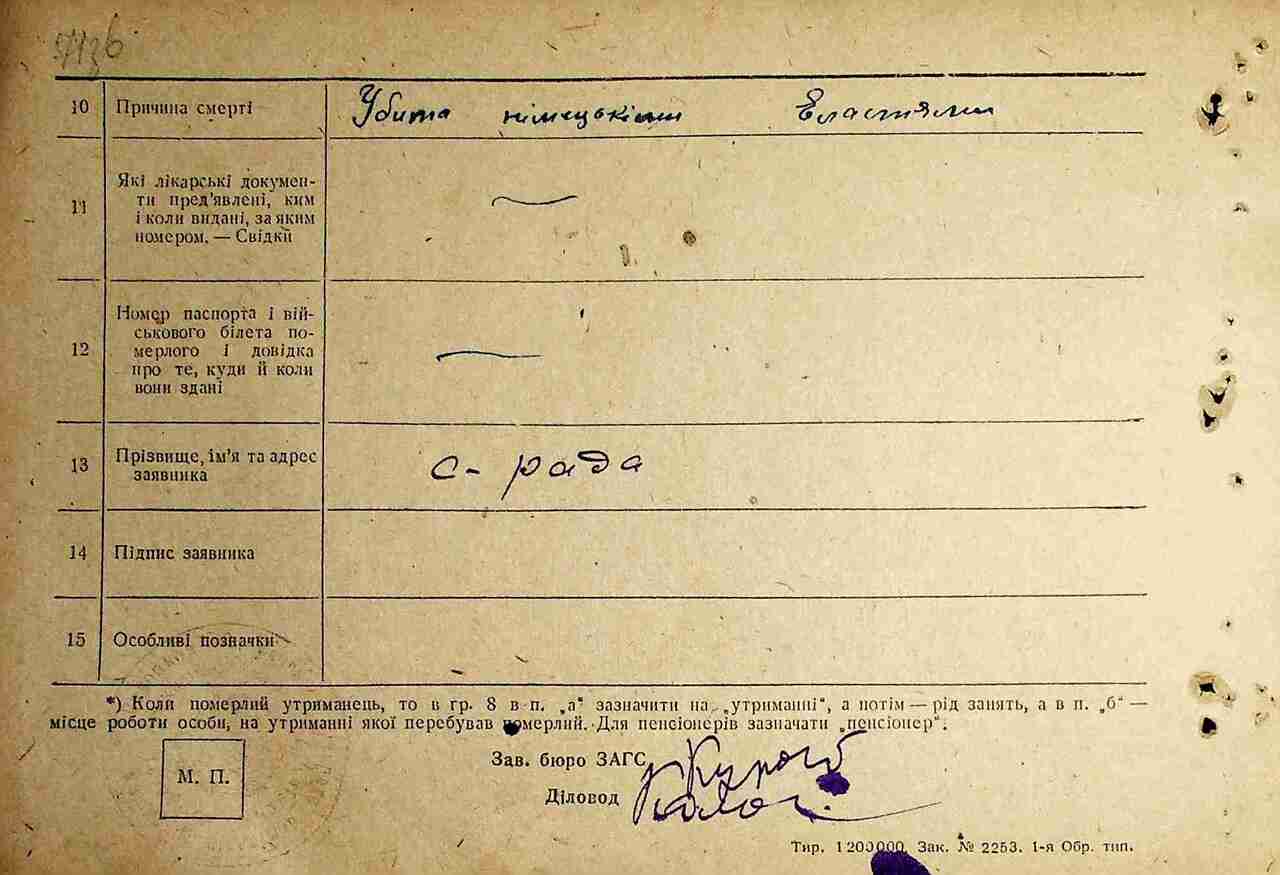 10 Причина смерті Убита німецькіми Властями
11 Які лікарські докумен-
ти пред’явлені, ким
і коли видані, за яким
номером. — Свідки
12 Номер паспорта і вій-
ськового білета по-
мерлого і довідка
про те, куди й коли
вони здані
13 Прізвище, ім’я та адрес
заявника
с-рада
14 Підпис заявника
15 Особливі позначки
*) Коли померлий утриманець, то в гр. 8 в п. „а“ зазначити на „утриманні“, а потім — рід занять, а в п. „б“ —
місце роботи особи, на утриманні якої перебував померлий. Для пенсіонерів зазначати „пенсіонер“.
М. П.
Зав. бюро ЗАГС
Діловод
Тир. 1200000. Зак. № 2253. 1-я Обр. тип.